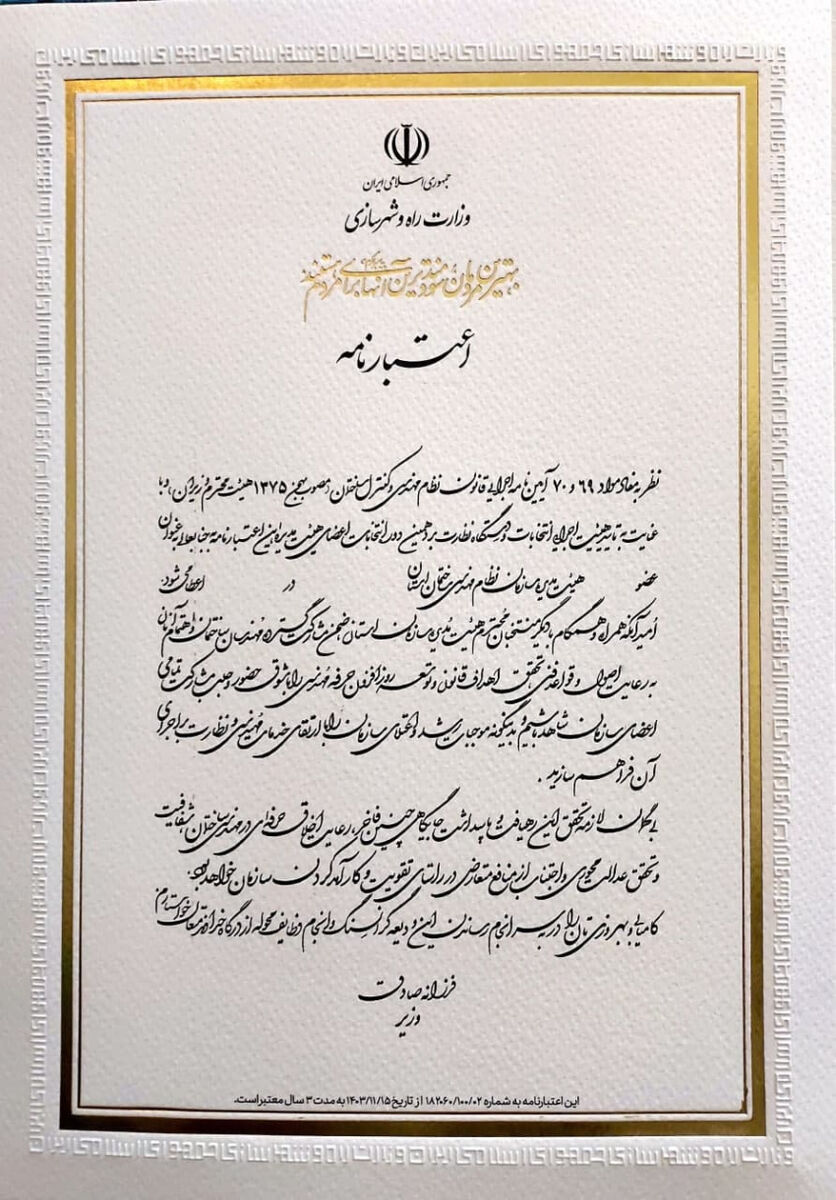 جمهوری اسلامی ایران
وزارت راه و شهرسازی
بهترین مردمان، سودمندترین آنها برای مردم هستند
اعتبارنامه
نظر به مفاد مواد ۶۹ و ۷۰ آیین‌نامه اجرایی قانون نظام مهندسی و کنترل ساختمان (مصوب بهمن ۱۳۷۵ هیئت محترم وزیران) و با
عنایت به تایید هیئت اجرایی انتخابات و دستگاه نظارت بر دهمین دوره انتخابات اعضای هیئت مدیره، این اعتبارنامه به جنابعالی به عنوان
عضو هیئت مدیره سازمان نظام مهندسی ساختمان استان در اعطا می‌شود.
امید آنکه همراه و همگام با دیگر منتخبان محترم هیئت مدیره سازمان استان، ضمن مشارکت گسترده مهندسان ساختمان و اهتمام آنان
به رعایت اصول و قواعد فنی، تحقق اهداف قانون و توسعه روزافزون حرفه مهندسی را با شوق حضور و جلب مشارکت تمامی
اعضای سازمان شاهد باشیم و بدینگونه موجبات رشد و اعتلای سازمان را با ارتقای خدمات مهندسی و نظارت بر اجرای
آن فراهم سازید.
بی‌گمان لازمه تحقق این رهیافت و پاسداشت جایگاهی چنین فاخر، رعایت اخلاق حرفه‌ای در مهندسی ساختمان، شفافیت
و تحقق عدالت محوری و اجتناب از منافع متعارض در راستای تقویت و کارآمد کردن سازمان خواهد بود.
کامیابی و بهروزی‌تان را در به سرانجام رساندن این ودیعه گرانسنگ و انجام وظایف محوله از درگاه خداوند متعال خواستارم
فرزانه صادق
وزیر
این اعتبارنامه به شماره ۱۸۲۰۶۰/۱۰۰/۰۲ از تاریخ ۱۴۰۳/۱۱/۱۵ به مدت ۳ سال معتبر است.